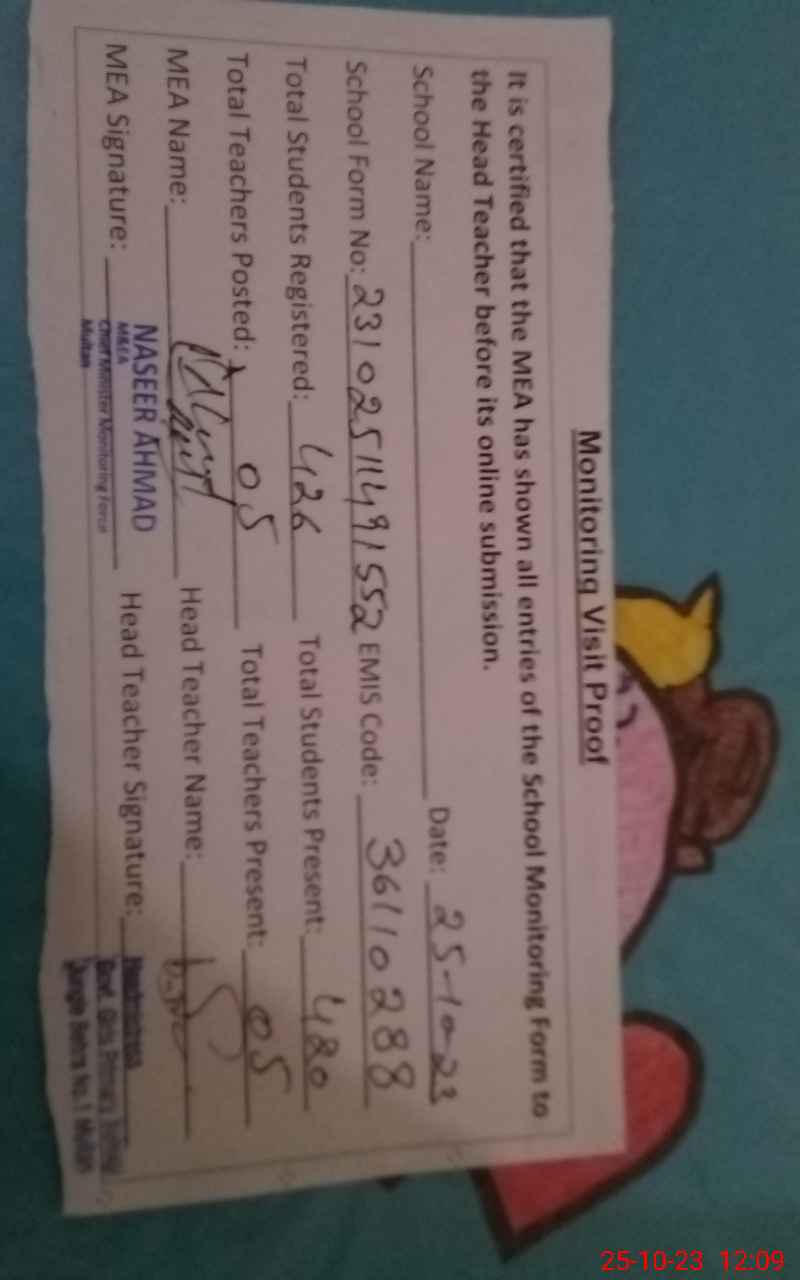 Monitoring Visit Proof
It is certified that the MEA has shown all entries of the School Monitoring Form to
the Head Teacher before its online submission.
School Name: Date: 25-10-23
School Form No: 23102511491552 EMIS Code: 36110288
Total Students Registered: 426 Total Students Present: 420
Total Teachers Posted: 05 Total Teachers Present: 05
MEA Name: Head Teacher Name:
MEA Signature: Head Teacher Signature:
NASEER AHMAD
M&EA
Chief Minister Monitoring Force
Multan
Headmistress
Govt. Girls Primary School
Jungle Behra No.1 Multan
25-10-23 12:09